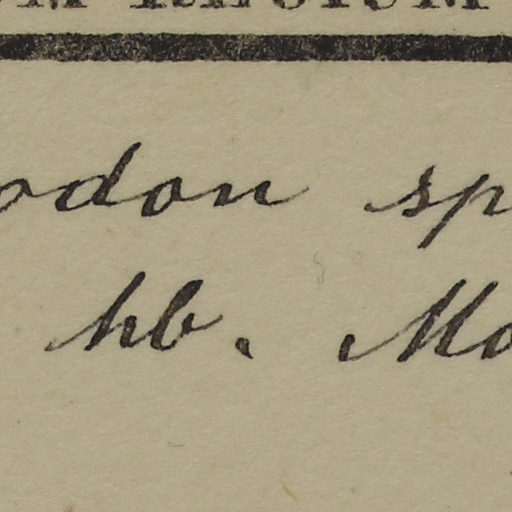 odon sp
hb. Mo